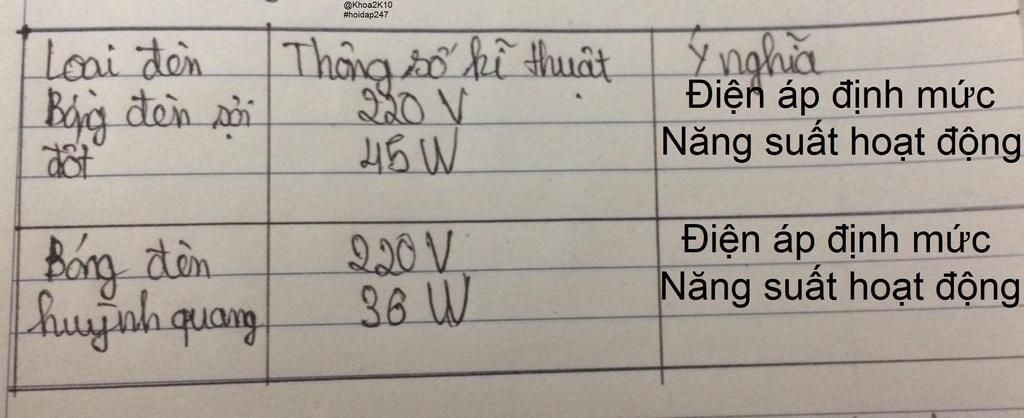 @Khoa2K10
#hoidap247
Loại đèn Thông số kĩ thuật Ý nghĩa
Bóng đèn sợi 220 V Điện áp định mức
đốt 45 W Năng suất hoạt động
Bóng đèn 220 V Điện áp định mức
huỳnh quang 36 W Năng suất hoạt động